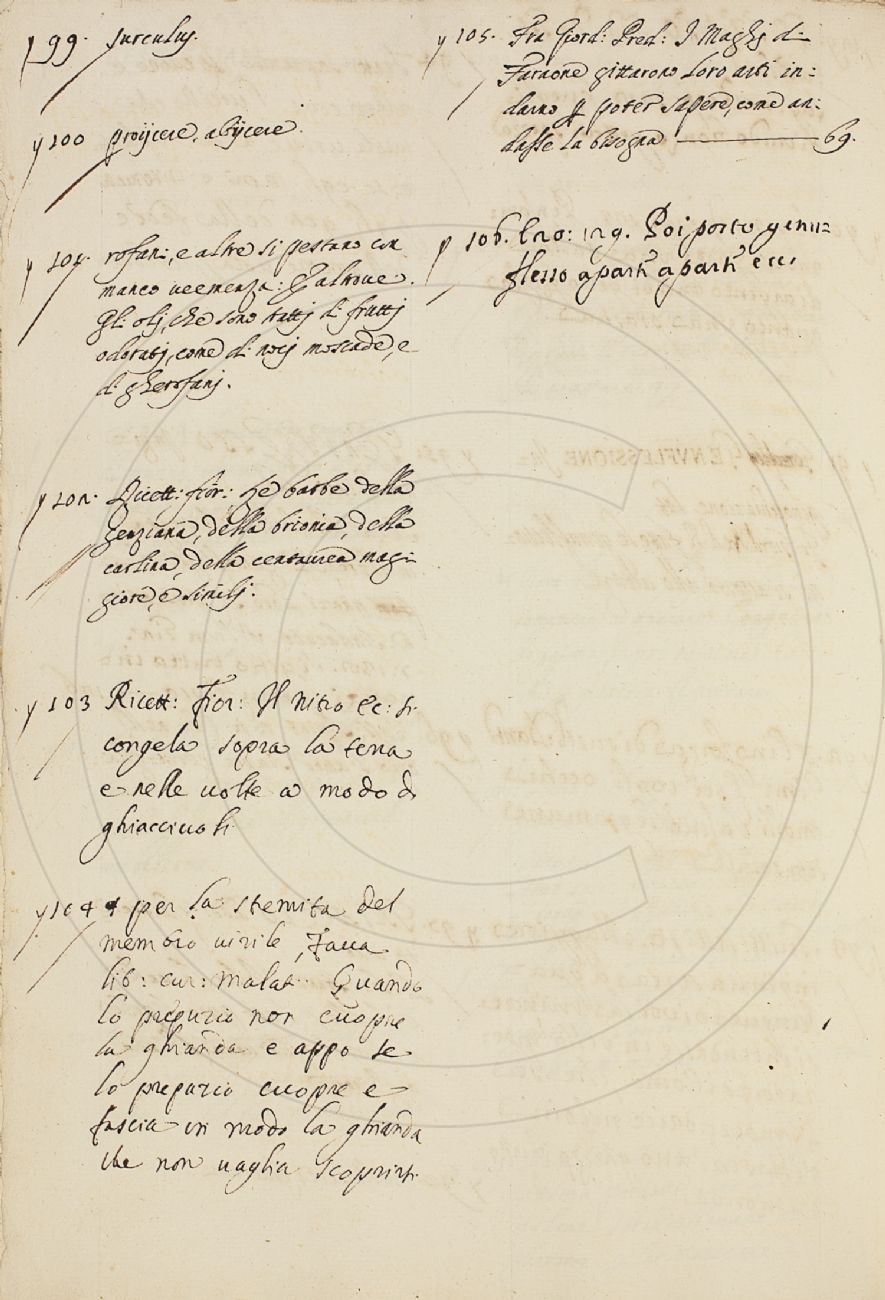 y 99. surculus.
y 100 proijcere, abijcere.
y 101. rofani, e altre si pestano con
manco veemenza: E altrove.
Gli olij, che sono tratti di frutti
odorati, come di nocj moscade, e
di gherofanj.
y 102. Ricett: fior: Le barbe della
genziana, della brionia, della
carlina, della centaurea mag-
giore, e similj.
y 103 Ricett: Fior: Il nitro &c: si
congela sopra la terra
e nelle volte a modo di
ghiacciuoli
y 104 per la stremità del
membro virile,
lib: cur: malat: Quando
lo prepuzio non cuopre
la ghianda e appo se
lo prepuzio cuopre e
fascia in modo la ghianda
che non vaglia scoprirsi
y 105. Fra Giord: Pred: I Maghj di
Faraone gittarono loro arti in=
darno p poter sapere, come an=
dasse la bisogna 69.
y 106. Poi porto genu=
flesso a parte a parte ec.
GENVFLESSIONE